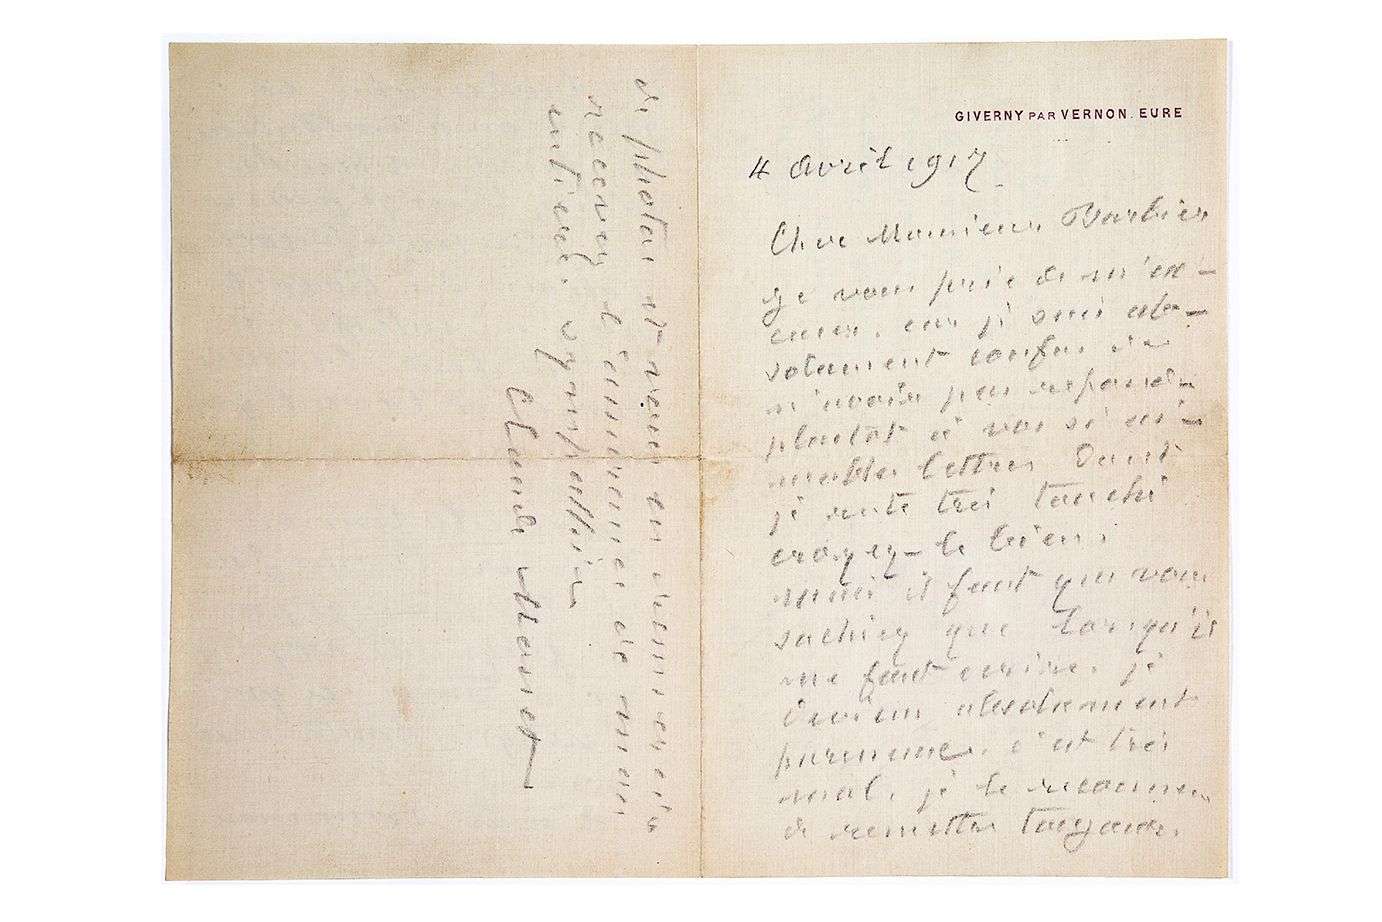 GIVERNY PAR VERNON. EURE
4 Avril 1917
Cher Monsieur Barbier
Je vous prie de m'ex-
cuser, car je suis ab-
solument confus de
n'avoir pas repondu
plutôt à vos si ai-
mables lettres dont
je reste très touché
croyez-le bien.
mais il faut que vous
sachiez que lorsqu'il
me faut ecrire, je
deviens absolument
paresseux, c'est très
mal, je le reconnais,
de remettre toujours.
de photos et vous en remercie
recevez l'assurance de mes
entieres sympathies
Claude Monet